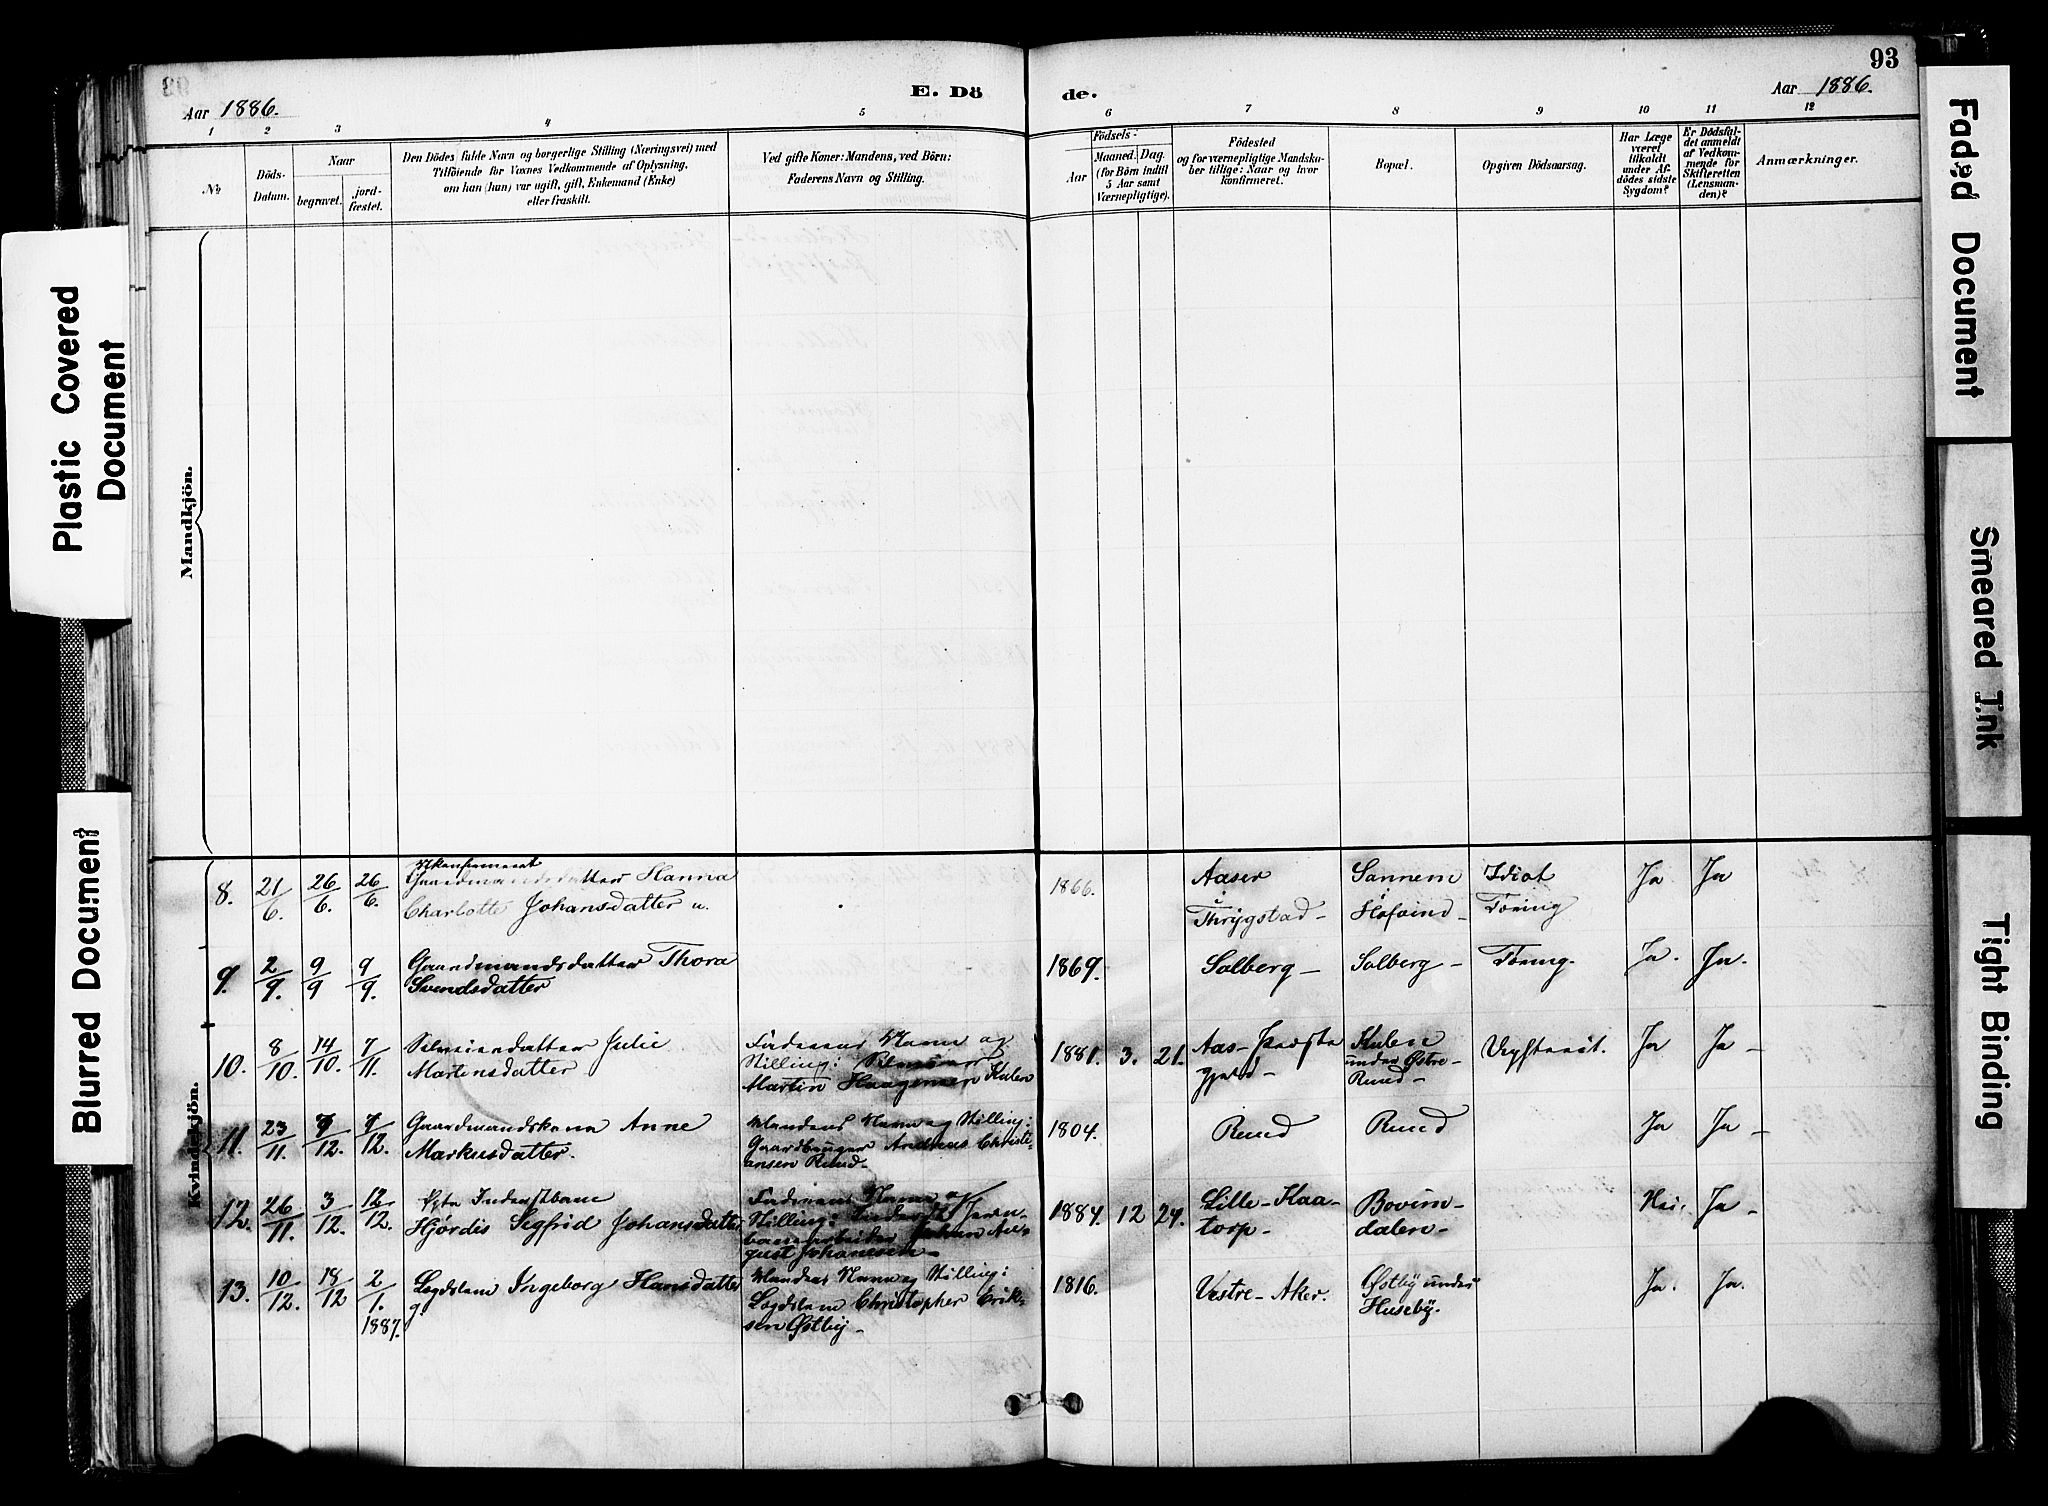 93
Aar 1886.
E. Dö
de.
Aar 1886.
1 2 3 4 5 6 7 8 9 10 11 12
№
Döds-
Datum.
Naar
begravet.
jord-
fæstet.
Den Dödes fulde Navn og borgerlige Stilling (Næringsvei) med
Tilföiende for Voxnes Vedkommende af Oplysning,
om han (hun) var ugift, gift, Enkemand (Enke)
eller fraskilt.
Ved gifte Koner: Mandens, ved Börn:
Faderens Navn og Stilling.
Födsels-
Aar
Maaned. Dag.
(for Börn indtil
5 Aar samt
Værnepligtige).
Födested
og for værnepligtige Mandska-
ber tillige: Naar og hvor
konfirmeret.
Bopæl.
Opgiven Dödsaarsag.
Har Læge
været
tilkaldt
under Af-
dödes sidste
Sygdom?
Er Dödsfal-
det anmeldt
af Vedkom-
mende for
Skifteretten
(Lensman-
den)?
Anmærkninger.
Mandkjön.
Kvindekjön.
8. 21/6. 26/6. 26/6.
Ukonfirmeret
Gaardmandsdatter Hanna
Charlotte Johansdatter u.
1866.
Aaser
i
Thrygstad-
Sannem
Hofvind-
Idiot
Tæring
Ja Ja
9. 2/9. 9/9 9/9.
Gaardmandsdatter Thora
Svendsdatter
1869.
Solberg-
Solberg-
Tæring.
Ja. Ja.
10. 8/10. 14/10. 7/11.
Selveierdatter Julie
Martinsdatter
Faderens Navn og
Stilling: Selveier
Martin Haagensen Kulen
1881. 3. 21.
Aas- Præste
gjeld-
Kulen
under Østre-
Ruud-
Ja Ja-
11. 23/11. 7/12. 7/12.
Gaardmandskone Anne
Markusdatter.
Mandens Navn og Stilling:
Gaardbruger Andreas Christi-
ansen Ruud-
1804.
Ruud
Ruud
Ja Ja-
12. 26/11. 3/12. 12/12.
Ægte Inderstbarn
Hjørdis Segfrid Johansdatter
Faderens Navn og
Stilling: Inderst Jern-
banearbeider Johan Au-
gust Johansen-
1884. 12 24.
Lille-Kaa-
torp-
Bovim-
dalen-
Nei. Ja-
13. 10/12. 18/12 2/1. 1887.
Lægdslem Ingeborg Hansdatter
g.
Mandens Navn og Stilling:
Lægdslem Christopher Erik-
sen Østby-
1816.
Vestre-Aker.
Østby under
Huseby.
Ja. Ja.
Plastic Covered
Document
Blurred Document
Faded Document
Smeared Ink
Tight Binding